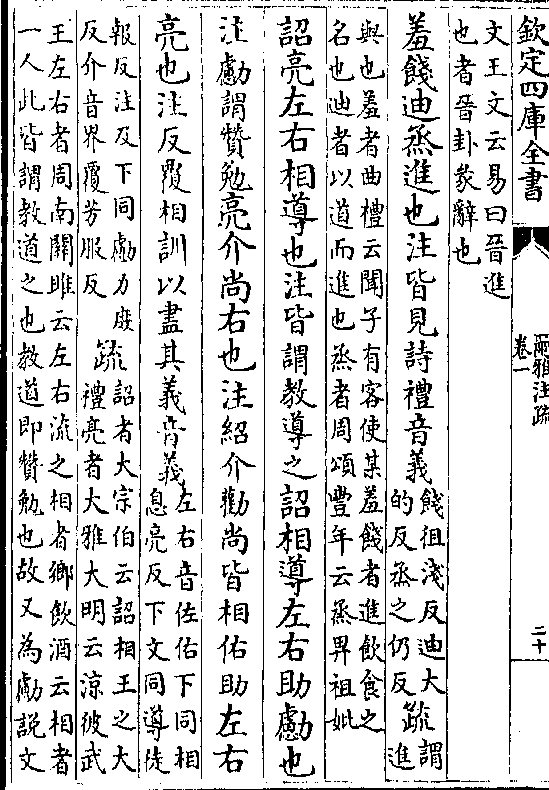 欽定四庫全書
爾雅注疏
卷一
二十
文王文云易曰晉進
也者晉卦彖辭也
羞餞迪烝進也注皆見詩禮音義
餞徂淺反迪大
的反烝之仍反
疏
謂
進
與也羞者曲禮云聞子有客使某羞餞者進飲食之
名也迪者以道而進也烝者周頌豐年云烝畀祖妣
詔亮左右相導也注皆謂教導之詔相導左右助勴也
注勴謂贊勉亮介尚右也注紹介勸尚皆相佑助左右
亮也注反覆相訓以盡其義音義
左右音佐佑下同相
息亮反下文同導徒
報反注及下同勴力庶
反介音界覆芳服反
疏
詔者大宗伯云詔相王之大
禮亮者大雅大明云涼彼武
王左右者周南關雎云左右流之相者鄉飲酒云相者
一人此皆謂教道之也教道即贊勉也故又為勴說文